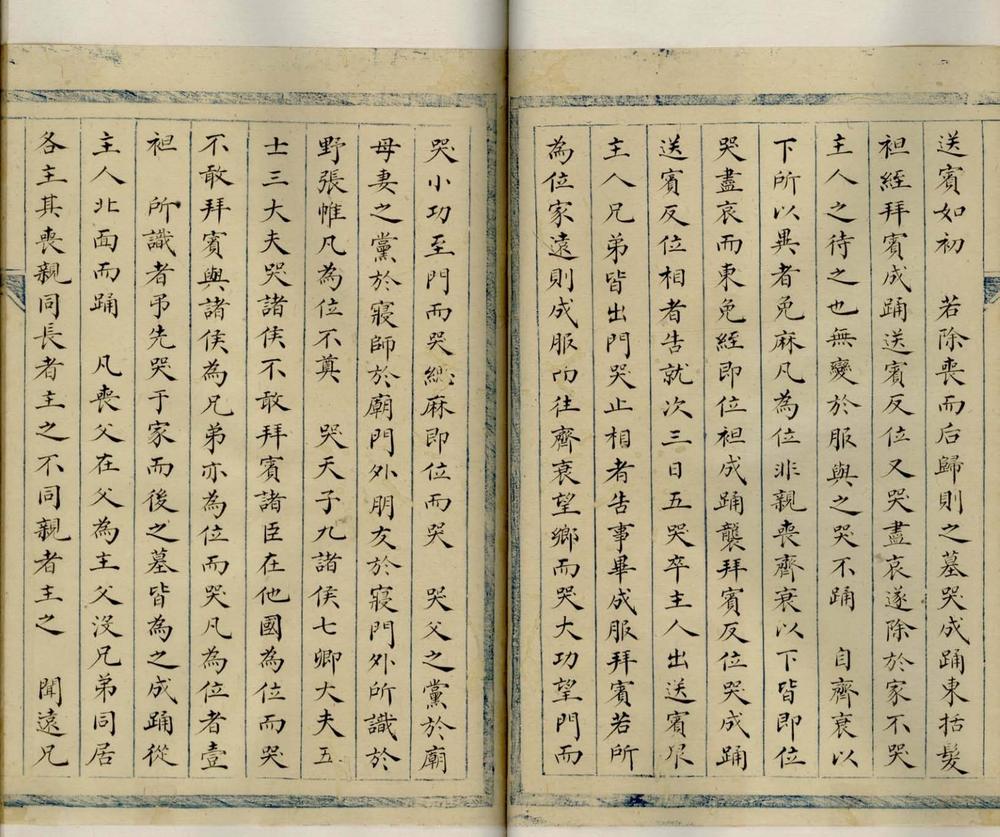 送賓如初　若除喪而后歸則之墓哭成踊東括髮
袒絰拜賓成踊送賓反位又哭盡哀遂除於家不哭
主人之待之也無變於服與之哭不踊　自齊衰以
下所以異者免麻凡為位非親喪齊衰以下皆即位
哭盡哀而東免絰即位袒成踊襲拜賓反位哭成踊
送賓反位相者告就次三日五哭卒主人出送賓眾
主人兄弟皆出門哭止相者告事畢成服拜賓若所
為位家遠則成服而往齊衰望鄉而哭大功望門而
哭小功至門而哭緦麻即位而哭　哭父之黨於廟
母妻之黨於寢師於廟門外朋友於寢門外所識於
野張帷凡為位不奠　哭天子九諸侯七卿大夫五
士三大夫哭諸侯不敢拜賓諸臣在他國為位而哭
不敢拜賓與諸侯為兄弟亦為位而哭凡為位者壹
袒　所識者弔先哭于家而後之墓皆為之成踊從
主人北面而踊　凡喪父在父為主父沒兄弟同居
各主其喪親同長者主之不同親者主之　聞遠兄